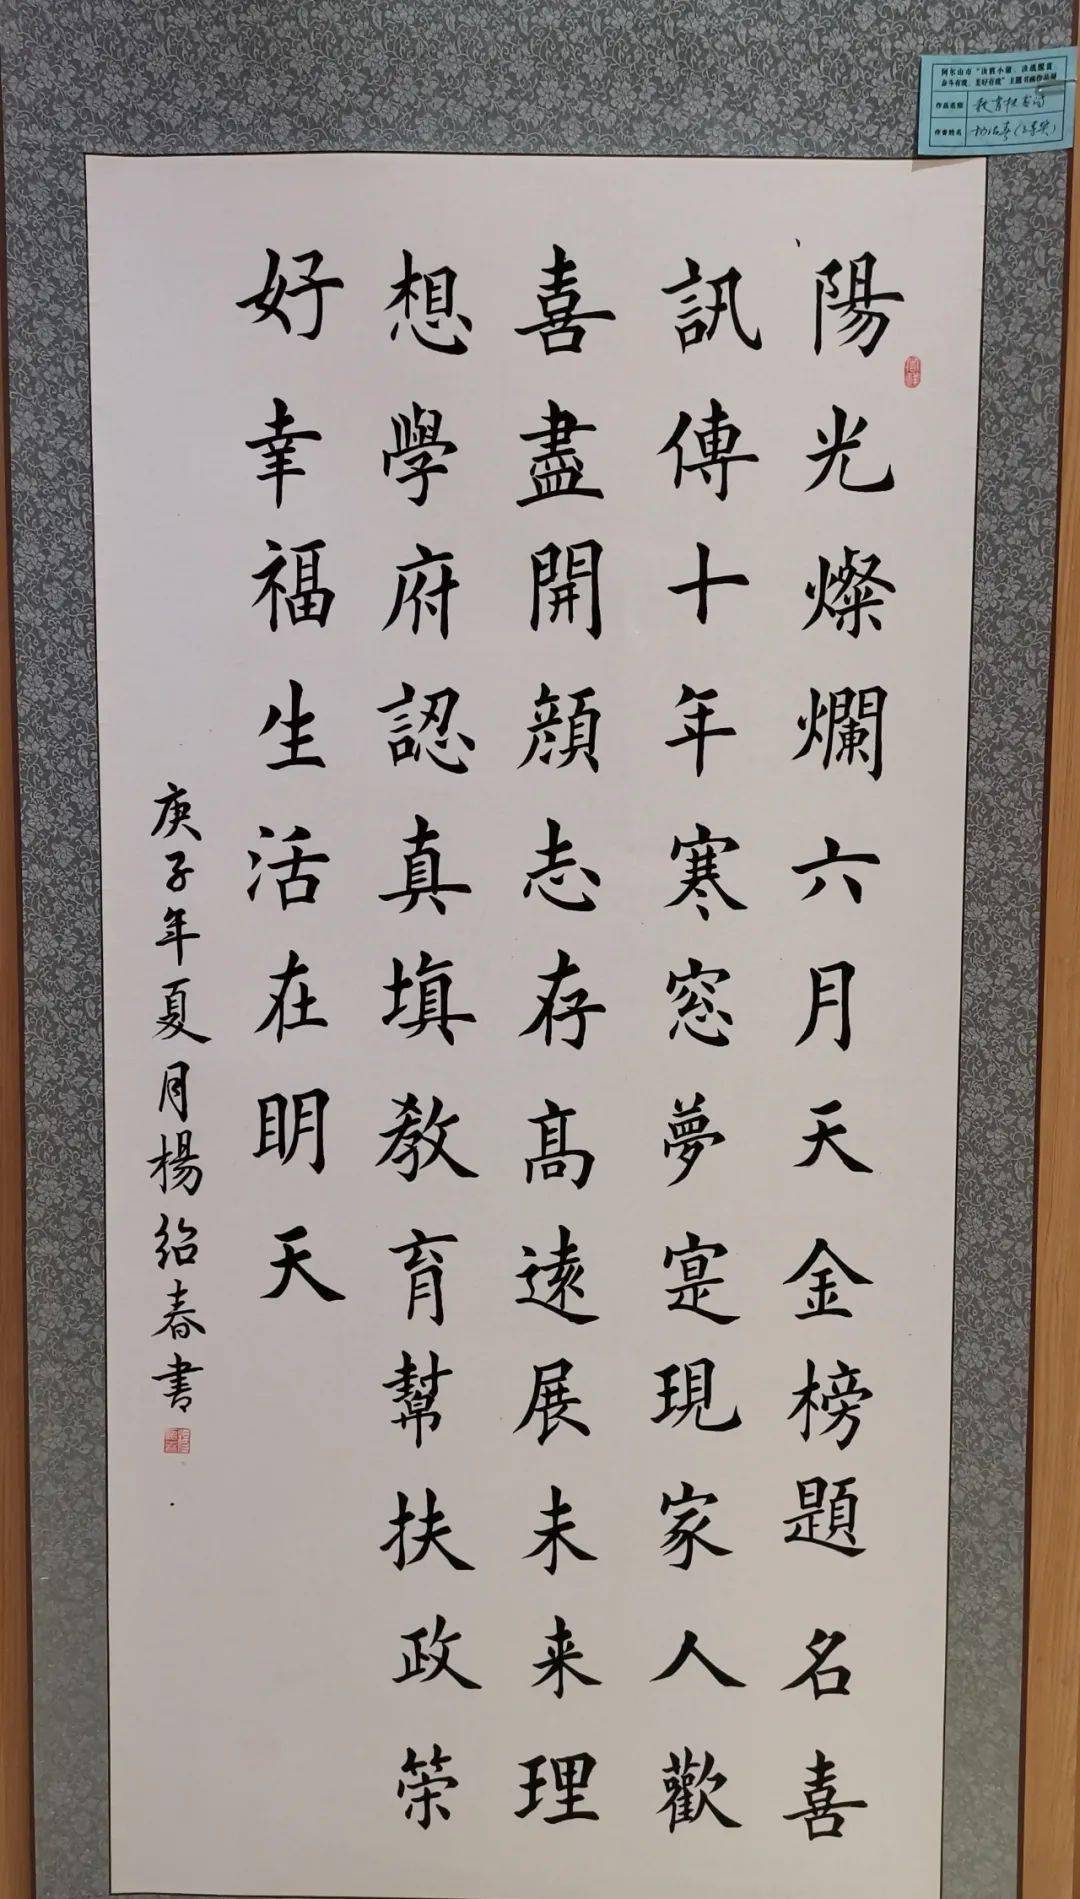 陽光燦爛六月天金榜題名喜
訊傳十年寒窓夢寔現家人歡
喜盡開顔志存高遠展未来理
想學府認真填教育幫扶政策
好幸福生活在明天
庚子年夏月楊紹春書
阿尔山市"决胜小康、决战脱贫
奋斗有我、美好有我"主题书画作品展
作品名称
作者姓名